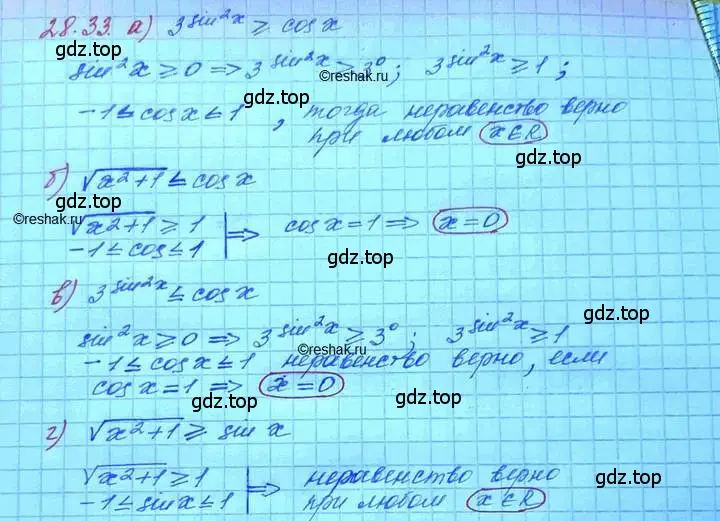 28.33. а) 3^sin²x ≥ cos x
sin²x ≥ 0 ⇒ 3^sin²x ≥ 3⁰; 3^sin²x ≥ 1;
©reshak.ru
gdz.top
gdz.top
-1 ≤ cos x ≤ 1, тогда неравенство верно
при любом x ∈ R
gdz.top
б) √x²+1 ≤ cos x
©reshak.ru
√x²+1 ≥ 1
-1 ≤ cos ≤ 1 ⇒ cos x = 1 ⇒ x = 0
gdz.top
gdz.top
в) 3^sin²x ≤ cos x
gdz.top
sin²x ≥ 0 ⇒ 3^sin²x ≥ 3⁰; 3^sin²x ≥ 1
©reshak.ru
-1 ≤ cos x ≤ 1 неравенство верно, если
cos x = 1 ⇒ x = 0
gdz.top
gdz.top
г) √x²+1 ≥ sin x
gdz.top
√x²+1 ≥ 1
-1 ≤ sin x ≤ 1 ⇒ неравенство верно
при любом x ∈ R
gdz.top
gdz.top